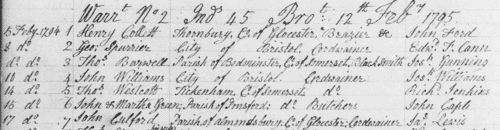 Warrt. No 2 Ind 45 Brot. 12th Feby 1795
5 Feby. 1794 1 Henry Collett Thornbury, Co. of Glocester Brazier &c John Ford
8 do. 2 Geo. Spurrier City of Bristol Cordwainer Edwd. T. Cann
do do. 3 Thos. Barwell Parish of Bedminster, Co. of Somerset, Black Smith Jos. Gunning
10 do. 4 John Williams City of Bristol Cordwainer Jos. Williams
14 do 5 Thos. Westcott Tickenham, Co. of Somerset, do. Richd. Jenkins
15 do 6 John & Martha Green, Parish of Pensford: do. Butchers John Caple
17 do. 7 John Culford Parish of Almondsbury, Co. of Glocester: Cordwainer Jas. Lewis